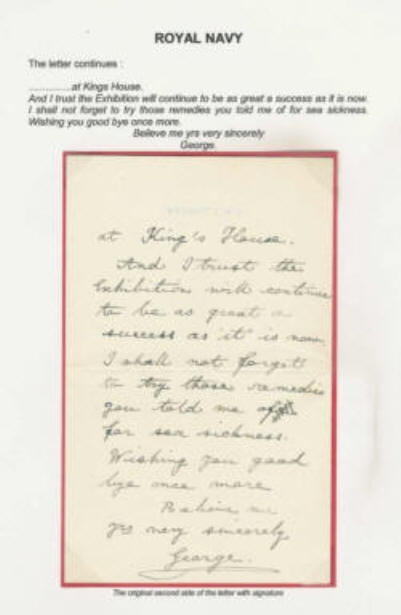 ROYAL NAVY
The letter continues :
..............at Kings House.
And I trust the Exhibition will continue to be as great a success as it is now.
I shall not forget to try those remedies you told me of for sea sickness.
Wishing you good bye once more.
Believe me yrs very sincerely
George.
at King's House.
And I trust the
Exhibition will continue
to be as great a
success as it is now.
I shall not forget
to try those remedies
you told me of
for sea sickness.
Wishing you good
bye once more
Believe me
yrs very sincerely
George.
The original second side of the letter with signature